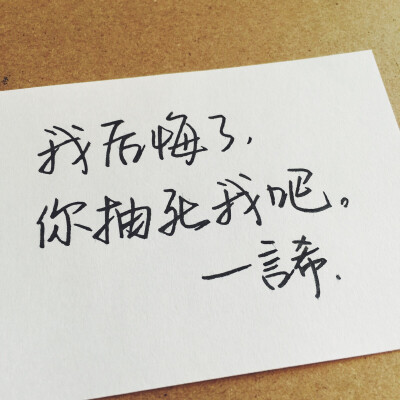 我后悔了,
你抽死我吧。
—言希.